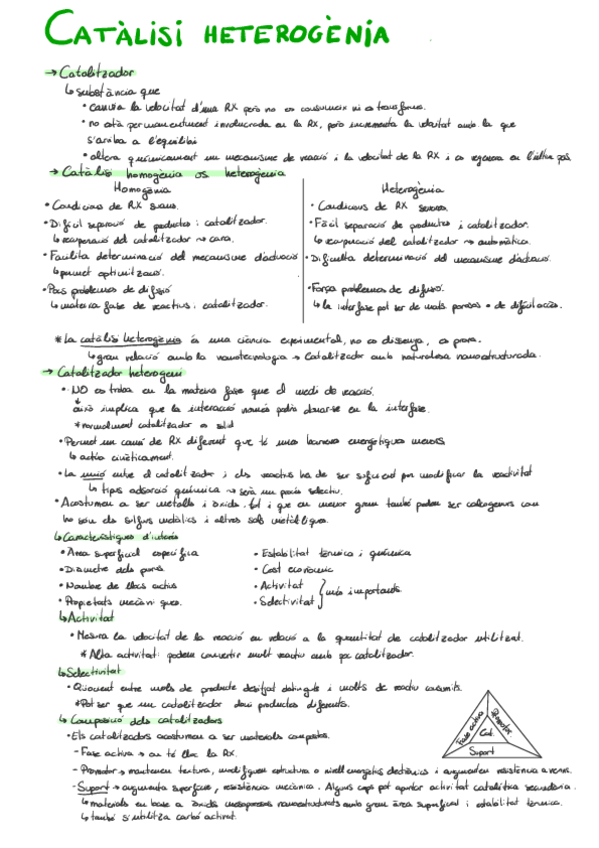 CATÀLISI HETEROGÈNIA
→ Catalitzador
↳ substància que
• canvia la velocitat d'una RX però no es consumeix ni es transforma.
• no està permanentment involucrada en la RX, però incrementa la velocitat amb la que
s'arriba a l'equilibri
• altera químicament un mecanisme de reacció i la velocitat de la RX i es regenera en l'últim pas.
→ Catàlisi homogènia vs heterogènia
Homogènia
• Condicions de RX suaus.
• Difícil separació de productes i catalitzador.
↳ recuperació del catalitzador → cara.
• Facilita determinació del mecanisme d'actuació
↳ permet optimització.
• Pocs problemes de difusió
↳ mateixa fase de reactius i catalitzador.
Heterogènia
• Condicions de RX severes.
• Fàcil separació de productes i catalitzador.
↳ recuperació del catalitzador → automàtica.
• Dificulta determinació del mecanisme d'actuació.
• Força problemes de difusió.
↳ la interfase pot ser de mats. porosos o de difícil accés.
* La catàlisi heterogènia és una ciència experimental, no es dissenya, es prova.
↳ gran relació amb la nanotecnologia → Catalitzador amb naturalesa nanoestructurada.
→ Catalitzador heterogeni
• NO es troba en la mateixa fase que el medi de reacció.
això implica que la interacció només podrà donar-se en la interfase.
* normalment catalitzador és sòlid
• Permet un camí de RX diferent que té unes barreres energètiques menors
↳ actua cinèticament.
• La unió entre el catalitzador i els reactius ha de ser suficient per modificar la reactivitat
↳ tipus adsorció química → serà un procés selectiu.
• Acostumen a ser metalls i òxids tot i que en menor grau també poden ser calcogenurs com
ho són els sulfurs metàl·lics i altres sals metàl·liques.
↳ Característiques d'interès
• Àrea superficial específica
• Diàmetre dels porus
• Nombre de llocs actius
• Propietats mecàniques.
• Estabilitat tèrmica i química
• Cost econòmic
• Activitat
• Selectivitat
més importants
↳ Activitat
• Mesura la velocitat de la reacció en relació a la quantitat de catalitzador utilitzat.
* Alta activitat: podem convertir molt reactiu amb poc catalitzador.
↳ Selectivitat
• Quocient entre mols de producte desitjat obtinguts i mols de reactiu consumits.
* Pot ser que un catalitzador doni productes diferents.
↳ Composició dels catalitzadors
• Els catalitzadors acostumen a ser materials compostos.
- Fase activa → on té lloc la RX.
- Promotor → mantenen textura, modifiquen estructura o nivell energètic electrònics i augmenten resistència a verins.
- Suport → augmenta superfície, resistència mecànica. Alguns cops pot aportar activitat catalítica secundària.
↳ materials en base a òxids mesoporosos nanoestructurats amb gran àrea superficial i estabilitat tèrmica.
↳ també s'utilitza carbó activat.
Fase activa
Promotor
Cat.
Suport